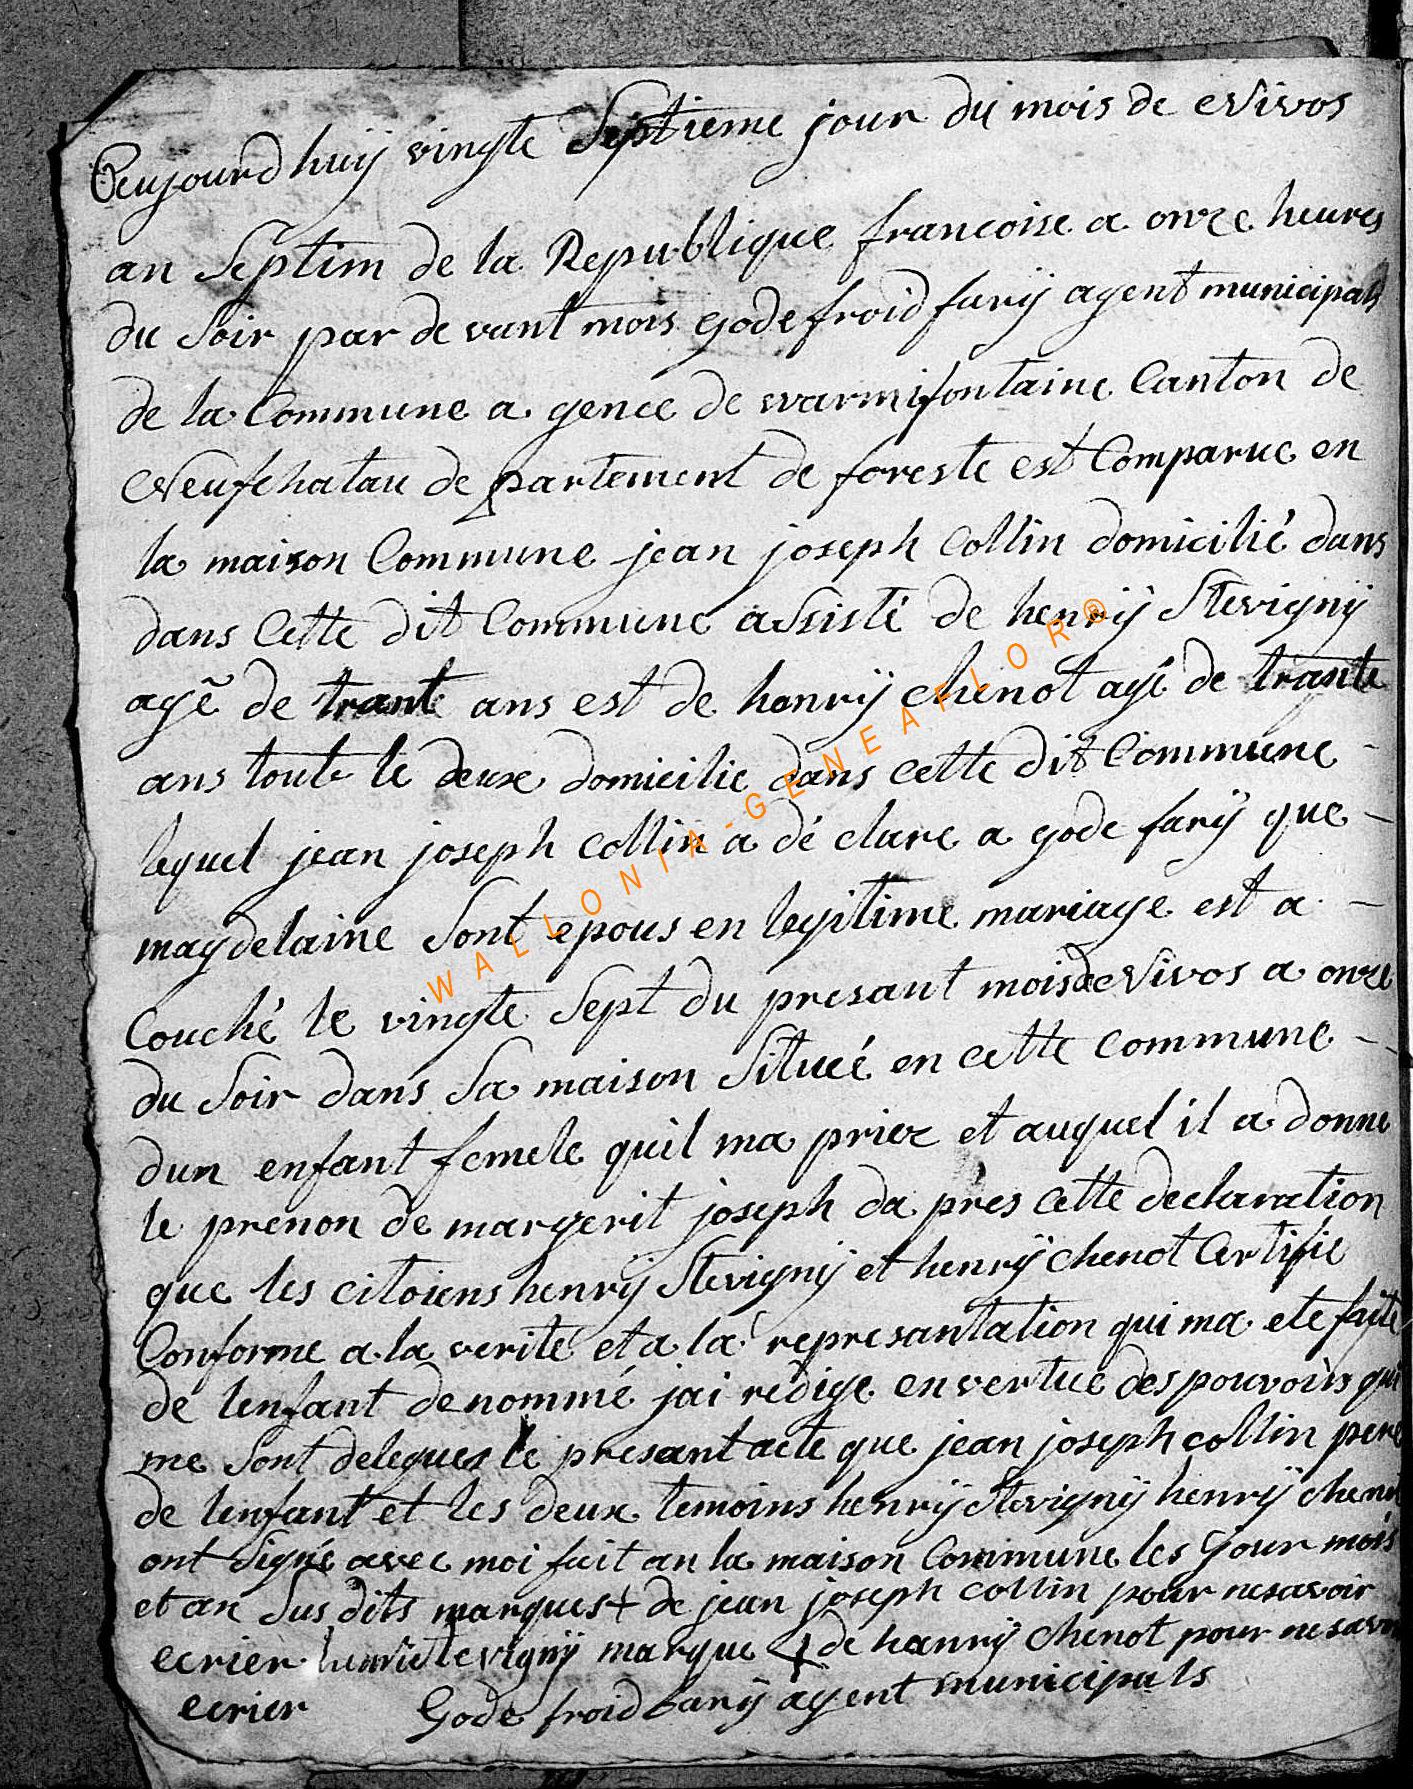 Aujourdhuÿ vingte Septieme jour du mois de Nivos
an Septim de la Republique francoise a onze heures
du Soir par de vant mois gode froid farÿ agent municipals
de la Commune a gence de warmifontaine Canton de
Neufchatau de partement de foreste est Comparue en
la maison Commune jean joseph Collin domicilié dans
dans Cette dit Commune assisté de henrÿ Stevignÿ
agé de trant ans est de henrÿ chenot agé de trante
ans tout le deux domicilie dans cette dit Commune
lequel jean joseph collin a dé clare a gode farÿ que
magdelaine Sont epous en legitime mariage est a
Couché le vingte Sept du presant mois de Nivos a onze
du Soir dans Sa maison Situeé en cette commune
dun enfant femele quil ma priez et auquel il a donne
le prenon de margerit joseph da pres cette declaration
que les citoiens henrÿ Stevignÿ et henrÿ chenot Certifie
Conforme a la verité et a la represantation qui ma ete faite
de lenfant denommé jai redige en vertue des pouvoirs qui
me sont delegues le presant acte que jean joseph collin pere
de lenfant et les deux temoins henrÿ Stevignÿ henrÿ chenot
ont Signé avec moi fait an la maison Commune les jour mois
et an Sus dits marques + de jean joseph collin pour ne savoir
ecrier henri stevignÿ marque + de hanrÿ chenot pour ne savoir
ecrier Gode froid farÿ agent municipals
WALLONIA-GENEAFLOR®